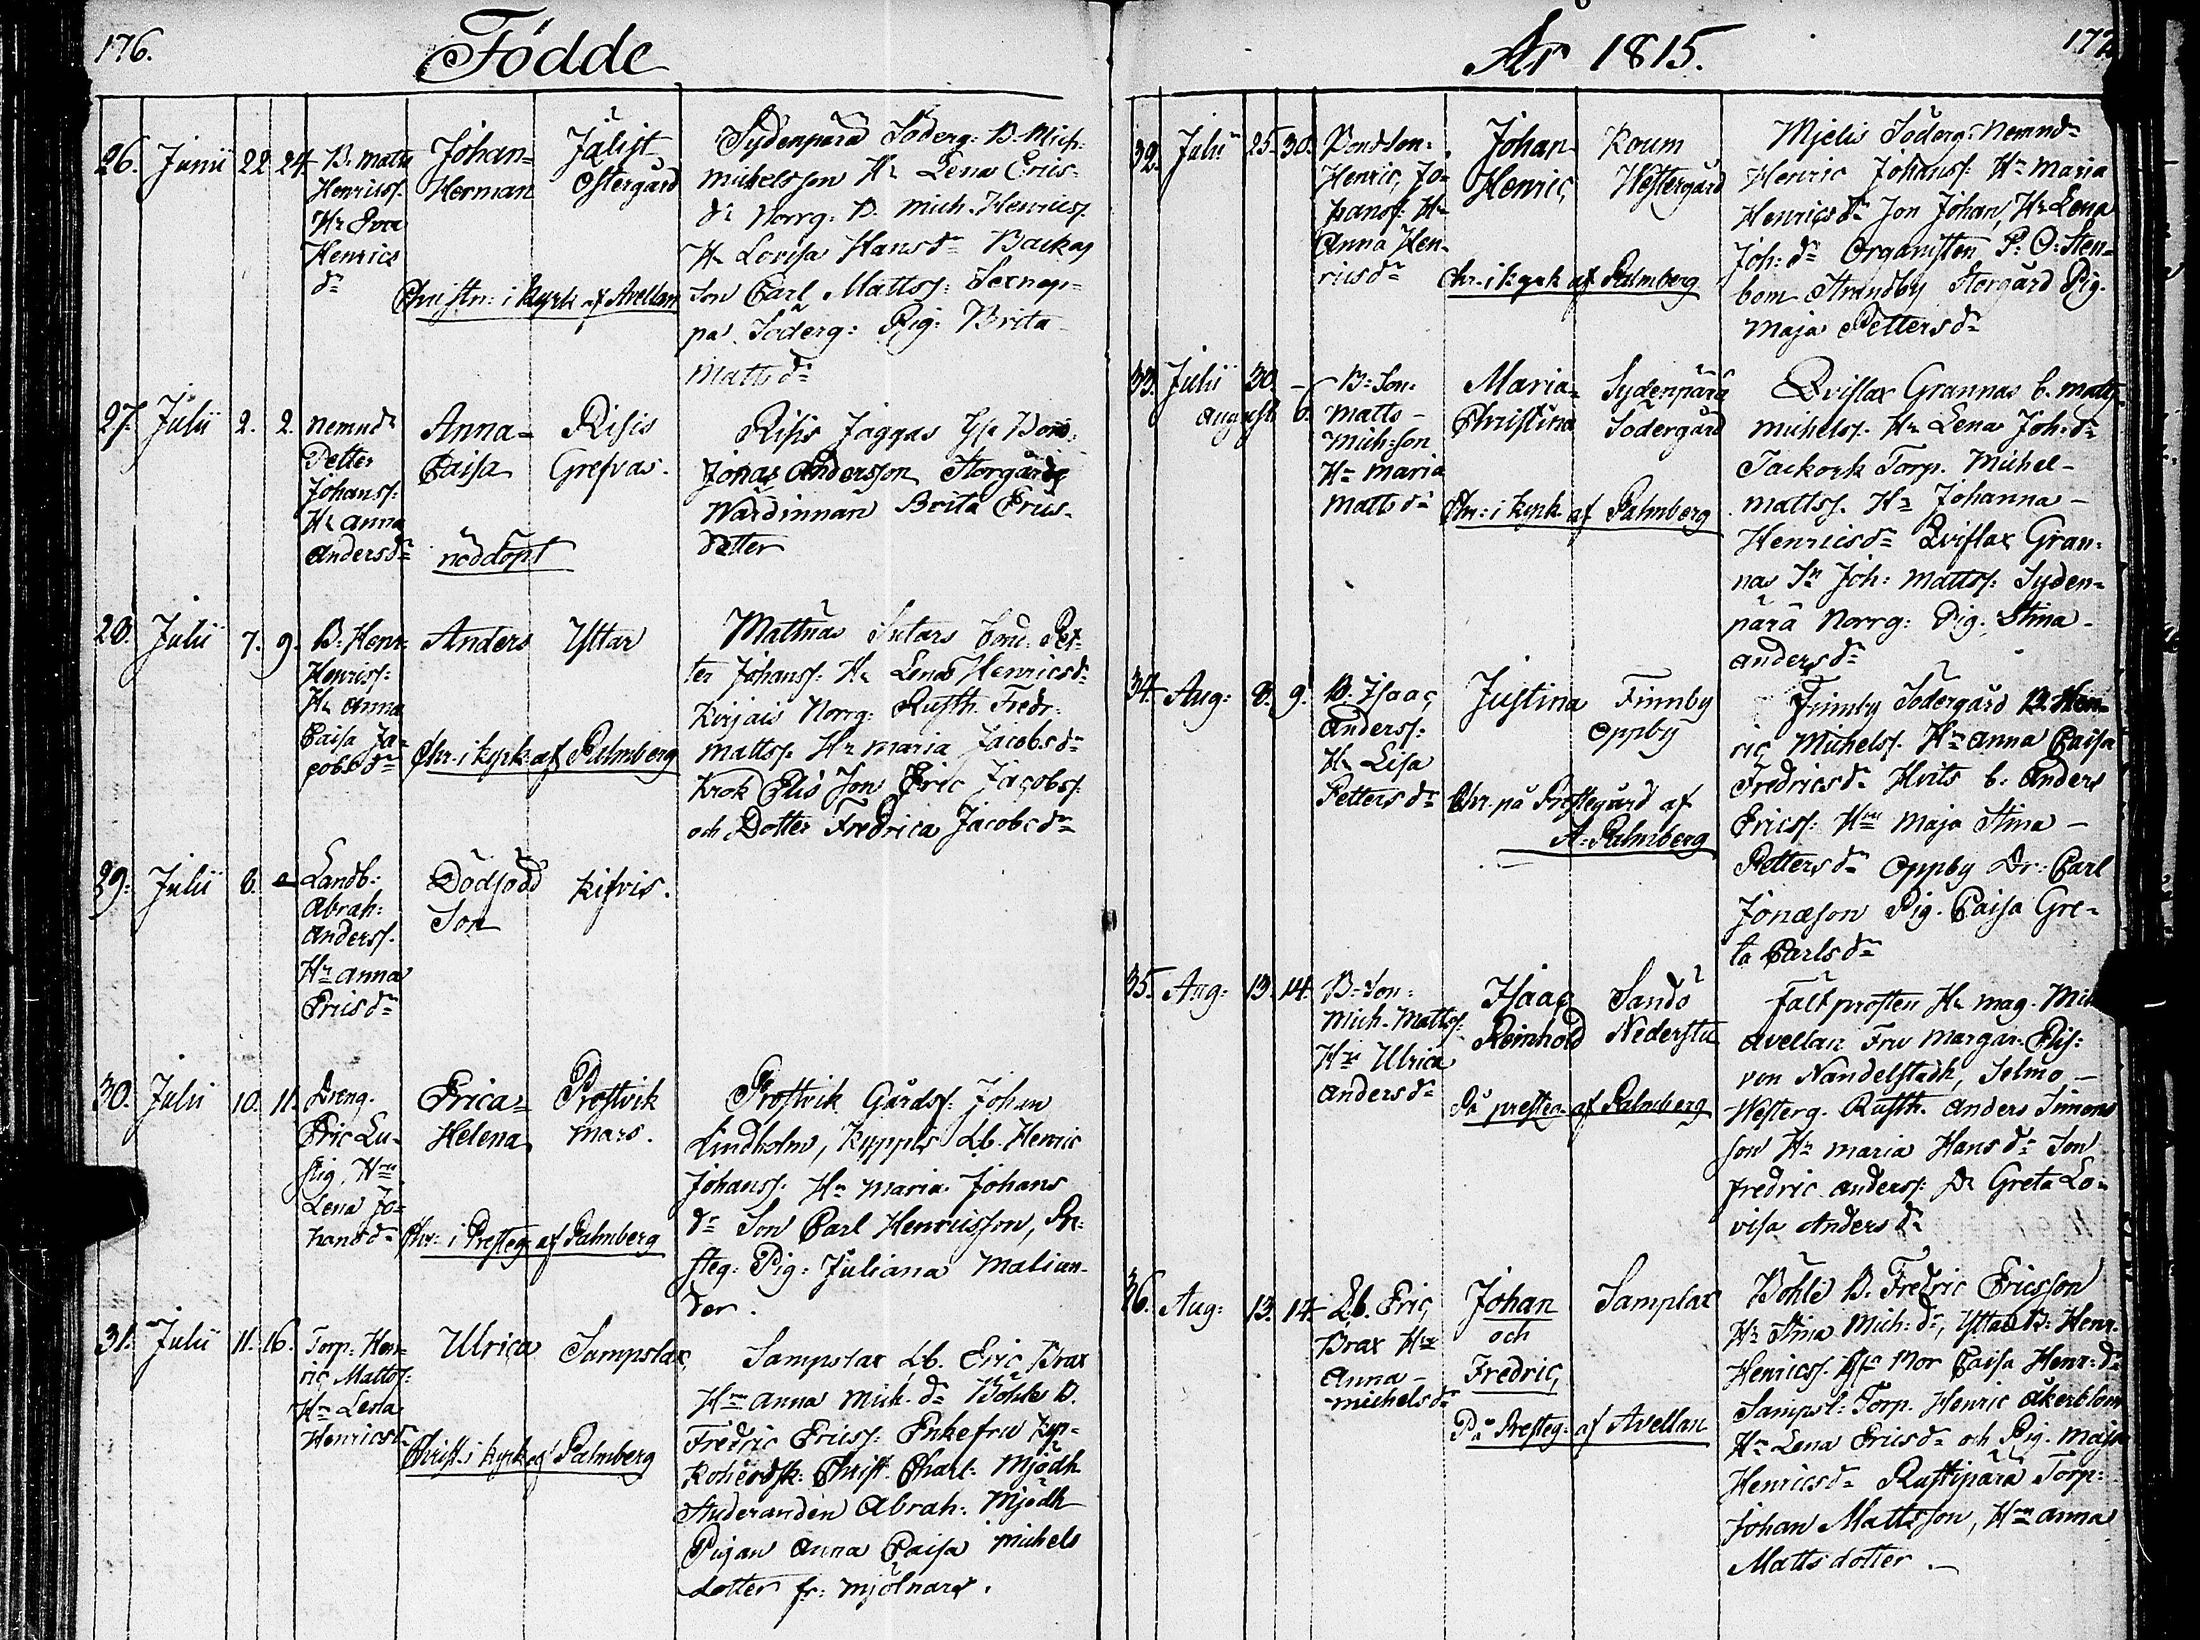 176.
Födde
26. Junii 22. 24.
B. Matts
Henricss.
Hr Eva
Henrics
dr
Johan-
Herman
Jälist
Östergård
Christn: i kyrk af Avellan
Sydenpärä Söderg: B. Mich:
Michelsson Hr Lena Erics-
dr Norrg: B. Mich. Henricss.
Hr Lovisa Hansdr Backas
Son Carl Mattss:
Söderg: Pig: Brita
Mattsdr
27. Julii 2. 2.
Nemnd
Petter
Johanss:
Hr Anna
Andersdr
Anna-
Caisa
nöddöpt
Risis
Grefvas.
Risis Jäggas
Jonas Andersson Storgårds
Wärdinnan Brita Erics-
dotter
28. Julii 7. 9.
B. Henr:
Henricss:
Hr Anna
Caisa Ja-
cobsdr
Anders
Yttar
Chr: i kyrk: af Palmberg
Mattnäs Sutars Bond. Pet-
ter Johanss. Hr Lena Henricsdr
Kirjais Norrg: Rusth. Fredr:
Mattss. Hr Maria Jacobsdr
Krok Elis Son Eric Jacobss.
och Dotter Fredrica Jacobsdr
29. Julii 8. –
Landb:
Abrah:
Anderss.
Hr Anna
Ericsdr
Dödfödd
Son
Kifvis.
30. Julii 10. 11.
Dreng.
Eric Lu-
stig, Hru
Lena Jo-
hansdr
Erica-
Helena
Prostvik
Mars.
Chr: i Presteg af Palmberg
Prostvik Gårdsf. Johan
Lindholm, Kyppis Lb. Henric
Johanss. Hr Maria Johans
dr Son Carl Henricsson, Pr-
steg: Pig: Juliana Malian-
der.
31. Julii 11. 16.
Torp. Hen-
ric Mattss:
Hr Lena
Henricsdr
Ulrica
Sampslax
Christ: i kyrk af Palmberg
Sampslax Lb. Eric Brax
Hru Anna Mich. dr Böhle B.
Fredric Ericss: Enkefru Kyr-
koherdsk: Christ. Charl: Mjödh
Studeranden Abrah: Mjödh
Pigan Anna Caisa Michels
dotter fr: Mjölnars.
År 1815.
177.
32. Julii 25. 30.
Bondson:
Henric Jo-
hanss: Hr
Anna Hen-
ricsdr
Johan
Henric
Roum
Westergård
Chr: i kyrk af Palmberg
Mielis Söderg: Nemnd
Henric Johanss: Hr Maria
Henricsdr Son Johan, Hr Lena
Joh: dr Organisten P: O: Sten-
bom Strandby Storgård Pig.
Maja Pettersdr
33. Julii 30. –
August 6.
B: Son:
Matts
Mich:son
Hr Maria
Mattsdr
Maria-
Christina
Sydenpärä
Södergård
Chr: i kyrk af Palmberg
Qviflax Grannas b. Matts
Michelss. Hr Lena Joh: dr
Tackork Torp. Michel-
Mattss. Hr Johanna-
Henricsdr Qviflax Gran-
nas Sn Joh: Mattss: Syden-
pärä Norrg: Pig: Stina-
Andersdr
34. Aug: 8. 9.
B. Isaac
Anderss:
Hr Lisa
Pettersdr
Justina
Finnby
Oppby
Chr. på Prestegård af
A: Palmberg
Finnby Södergård B. Hen-
ric Michelss. Hr Anna Caisa
Fredricsdr Hvits b. Anders
Ericss: Hru Maja Stina –
Pettersdr Oppby Dr: Carl
Jonæson Pig. Caisa Gre-
ta Carlsdr
35. Aug: 13. 14.
B: Son:
Mich. Mattss:
Hr Ulrica
Andersdr
Isaac
Reinhold
Sandö
Nederstu
På presteg: af Palmberg
Fältprosten Hr Mag. Mich
Avellan Fru Margar. Elis:
von Nandelstadh, Selmo –
Westerg. Rusth. Anders Simons
son Hr Maria Hansdr Son
Fredric Anderss: Dr Greta Lo-
visa Andersdr
36. Aug: 13. 14.
Lb. Eric
Brax Hru
Anna-
Michelsdr
Johan
och
Fredric
Samplax
På Presteg: af Avellan
Böhle B. Fredric Ericsson
Hr Stina Mich: dr, Yttar B: Henr.
Henricss. Mor Caisa Henr: dr
Sampsl: Torp. Henric Åkerblom
Hr Lena Ericsdr och Pig. Maja
Henricsdr Rustipärä Torp:
Johan Mattsson, Hru Anna
Mattsdotter. –